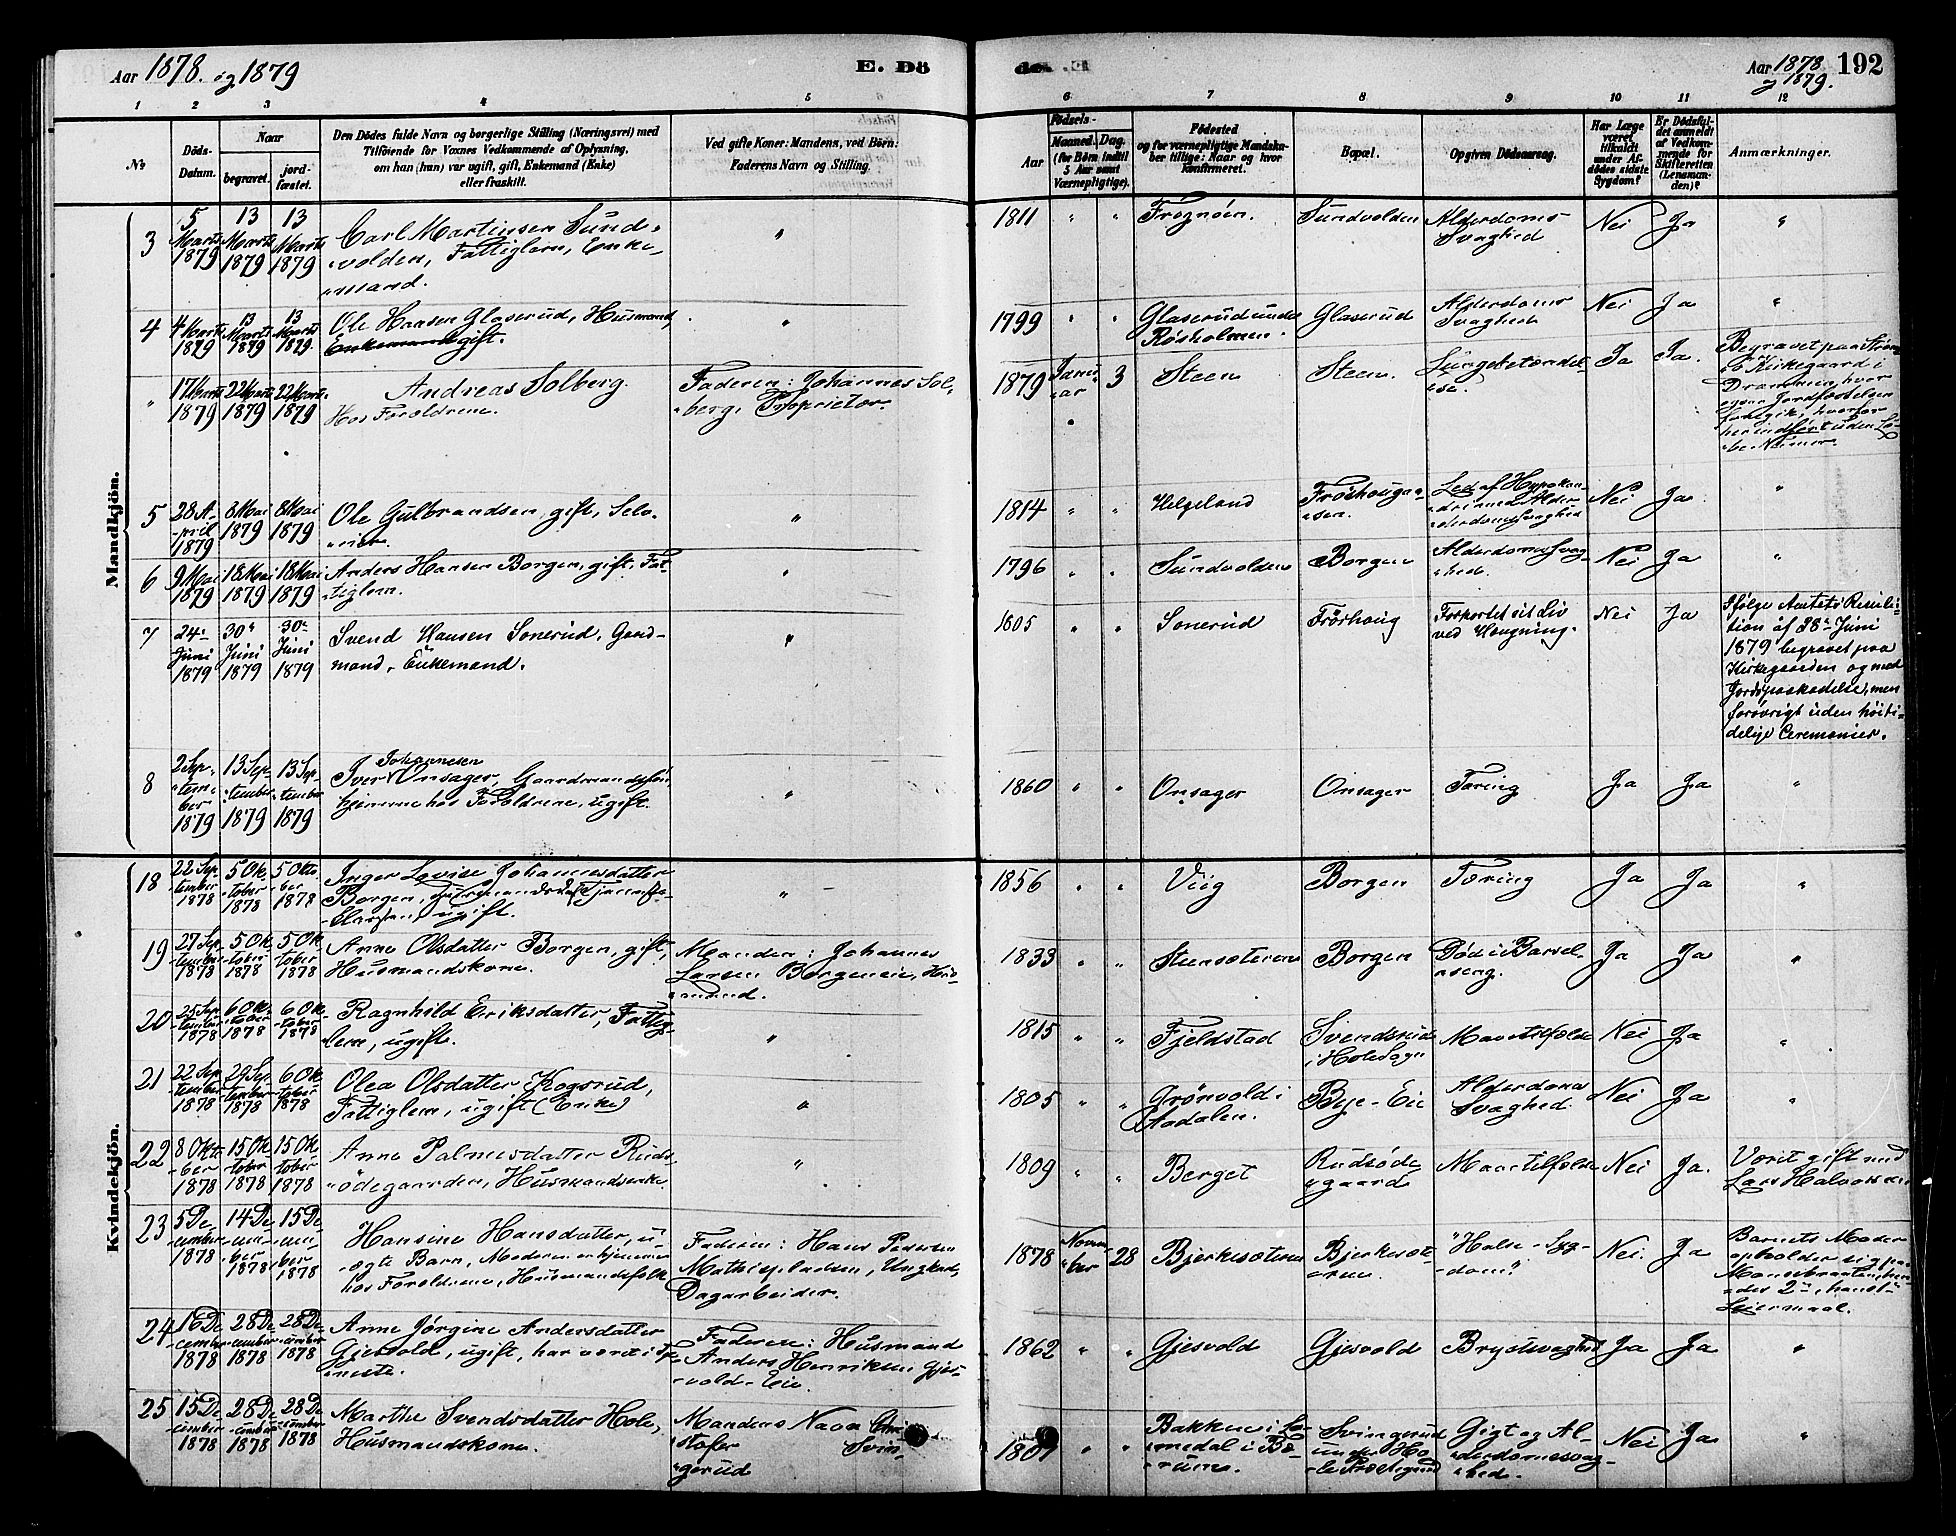 Aar 1878. og 1879
E. Dö
de. .E
Aar 1878. og 1879.
192
1 2 3 4 5 6 7 8 9 10 11 12
No
Döds-Datum.
Naar
begravet.
jord-fæstet.
Den Dödes fulde Navn og borgerlige Stilling (Næringsvei) med
Tilföiende for Voxnes Vedkommende af Oplysning,
om han (hun) var ugift, gift, Enkemand (Enke)
eller fraskilt.
Ved gifte Koner: Mandens, ved Börn:
Faderens Navn og Stilling.
Födsels-
Aar
Maaned. Dag.
(for Börn indtil
5 Aar samt
Værnepligtige).
Födested
og for værnepligtige Mandska-
ber tillige: Naar og hvor
konfirmeret.
Bopæl.
Opgiven Dödsaarsag.
Har Læge
været
tilkaldt
under Af-
dödes sidste
Sygdom?
Er Dödsfal-
det anmeldt
af Vedkom-
mende for
Skifteretten
(Lensman-
den)?
Anmærkninger.
Mandkjön.
3 5 Marts 1879 13 Marts 1879 13 Marts 1879
Carl Martinsen Sund-
volden, Fattiglem, Enke-
mand.
" 1811 " " Frognöen. Sundvolden Alderdoms Svaghed Nei Ja "
4 4 Marts 1879 13 Marts 1879 13 Marts 1879
Ole Hansen Glaserud, Husmand,
Enkemand gift.
" 1799 " " Glaserud under Røsholmen Glaserud Alderdoms Svaghed Nei Ja "
" 17 Marts 1879 22 Marts 1879 22 Marts 1879
Andreas Solberg.
Hos Forældrene.
Faderen: Johannes Sol-
berg, Proprietær.
1879 Janu-ar 3 Steen Steen. Lungebetændel-se. Ja Ja.
Begravet paa Strøms-
ø Kirkegaard i
Drammen, hvor
ogsaa Jordfæstelsen
foregik, hvorfor
her indført uden Lø-
be-Nummer.
5 28 April 1879 8 Mai 1879 8 Mai 1879
Ole Gulbrandsen, gift, Selv-
eier.
" 1814 " " Helgeland Frøshoug-
sen. Led af Hypokon-
dri med Alder-
derdomssvaghed Nei Ja "
6 9 Mai 1879 18 Mai 1879 18 Mai 1879
Anders Hansen Borgen, gift, Fat-
tiglem.
" 1796 " " Sundvolden Borgen Alderdomssvag-
hed. Nei Ja "
7 24 Juni 1879 30 Juni 1879 30 Juni 1879
Svend Hansen Sonerud, Gaard-
mand, Enkemand.
" 1805 " " Sonerud Frøshoug Forkortet sit Liv
ved Hængning. Nei Ja
Ifølge Amtets Resolu-
tion af 28de Juni
1879 begravet paa
Kirkegaarden og med
Jordspaakastelse, men
forøvrigt uden høiti-
delige Ceremonier.
8 2 September 1879 13 September 1879 13 September 1879
Iver Johannesen Onsager, Gaardmandssøn,
hjemme hos Forældrene, ugift.
" 1860 " " Onsager Onsager Tæring Ja Ja "
Kvindekjön.
18 22 September 1878 5 Oktober 1878 5 Oktober 1878
Inger Lovise Johannesdatter
Borgen, ugift.
" 1856 " " Viig Borgen Tæring Ja Ja "
19 27 September 1878 5 Oktober 1878 5 Oktober 1878
Anne Olsdatter Borgen, gift,
Husmandskone.
Manden: Johannes
Larsen Borgeneie, Hus-
mand.
1833 " " Steensæteren Borgen Död i Barsel-
seng. Ja Ja "
20 25 September 1878 6 Oktober 1878 6 Oktober 1878
Ragnhild Eriksdatter, Fattig-
lem, ugift.
" 1815 " " Fjeldstad Svendsrud
i Hole Sogn Mavetilfælde Nei Ja "
21 22 September 1878 29 September 1878 6 Oktober 1878
Olea Olsdatter Kogsrud,
Fattiglem, ugift (Enke)
" 1805 " " Grönvold i
Aadalen. Bye-Eie Alderdoms
Svaghed. Nei Ja "
22 8 Oktober 1878 15 Oktober 1878 15 Oktober 1878
Anne Palmesdatter Ruds-
ødegaarden, Husmandsenke.
" 1809 " " Berget Rudsøde
gaard Mavetilfælde Nei Ja.
Været gift med
Lars Halvorsen
23 5 December 1878 14 December 1878 15 December 1878
Hansine Hansdatter, u-
ægte Barn, Moderen er hjemme
hos Forældrene, Husmandsfolk
Faderen: Hans Pedersen
Mathispladsen, Ungkarl,
Dagarbeider.
1878 Novem-ber 28 Bjerkesæteren Bjerkesæt-
eren. "Hals-Syg-
dom" Nei. Ja
Barnets Moder
opholder sig paa
Mosebraaten, hen-
des 2det, hans 1ste
Leiermaal.
24 16 December 1878 28 December 1878 28 December 1878
Anne Jørgine Andersdatter
Gjesvold, ugift, har været i Tje-
neste.
Faderen: Husmand
Anders Henriksen Gjes-
vold-Eie
1862 " " Gjesvold Gjesvold Brystsvaghed Ja Ja "
25 15 December 1878 28 December 1878 28 December 1878
Marthe Svendsdatter Hole,
Husmandskone.
Mandens Navn Chri-
stofer Svin-
gerud
1807 " " Bakken i Lo-
medal i Bæ-
rum. Svingerud
under Ho-
le Præstegaard Gigt og Al-
derdomssvag-
hed. Nei Ja "